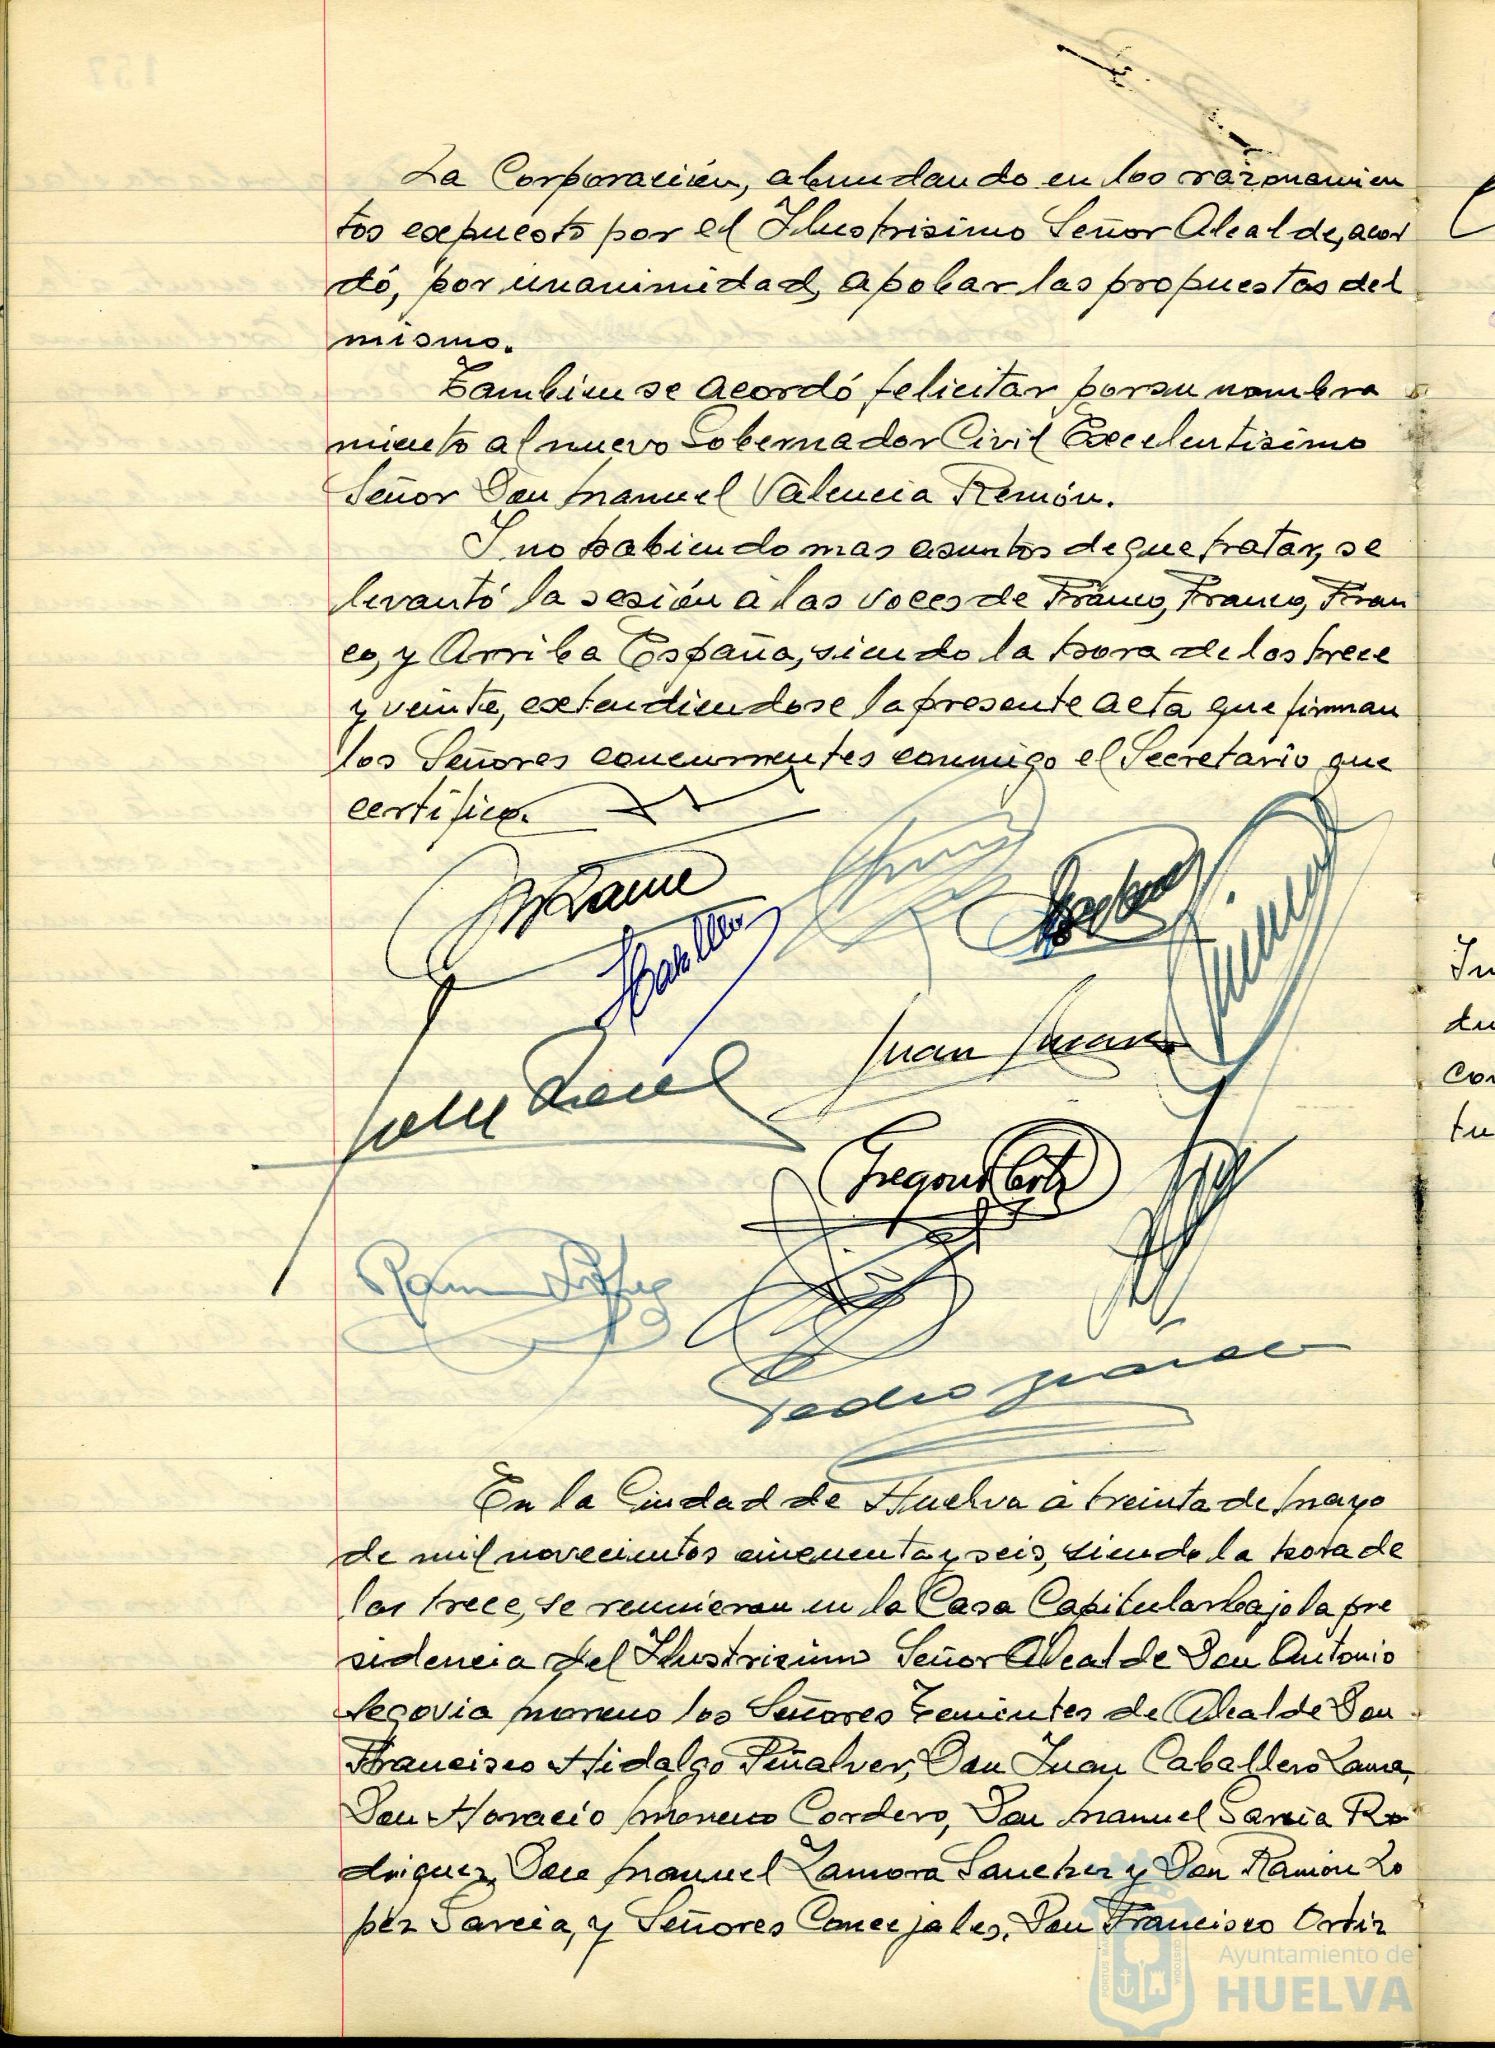 La Corporación, abundando en los razonamien
tos expuesto por el Ilustrisimo Señor Alcalde, acor
dó, por unanimidad, apobar las propuestas del
mismo.
Tambien se acordó felicitar por su nombra
miento al nuevo Gobernador Civil Excelentisimo
Señor Don Manuel Valencia Remón.
Y no habiendo mas asuntos de que tratar, se
levantó la sesión a las voces de Franco, Franco, Fran
co, y Arriba España, siendo la hora de las trece
y veinte, extendiendose la presente acta que firman
los Señores concurrentes conmigo el Secretario que
certifico.
Juan
Gregorio
Ramon
Pedro
En la Ciudad de Huelva a treinta de Mayo
de mil novecientos cincuenta y seis, siendo la hora de
las trece, se reunieron en la Casa Capitular bajo la pre
sidencia del Ilustrisimo Señor Alcalde Don Antonio
Segovia Moreno los Señores Tenientes de Alcalde Don
Francisco Hidalgo Peñalver, Don Juan Caballero Lama,
Don Horacio Moreno Cordero, Don Manuel Garcia Ro
driguez, Don Manuel Zamora Sanchez y Don Ramón Lo
pez Garcia, y Señores Concejales, Don Francisco Ortiz
Ayuntamiento de
HUELVA